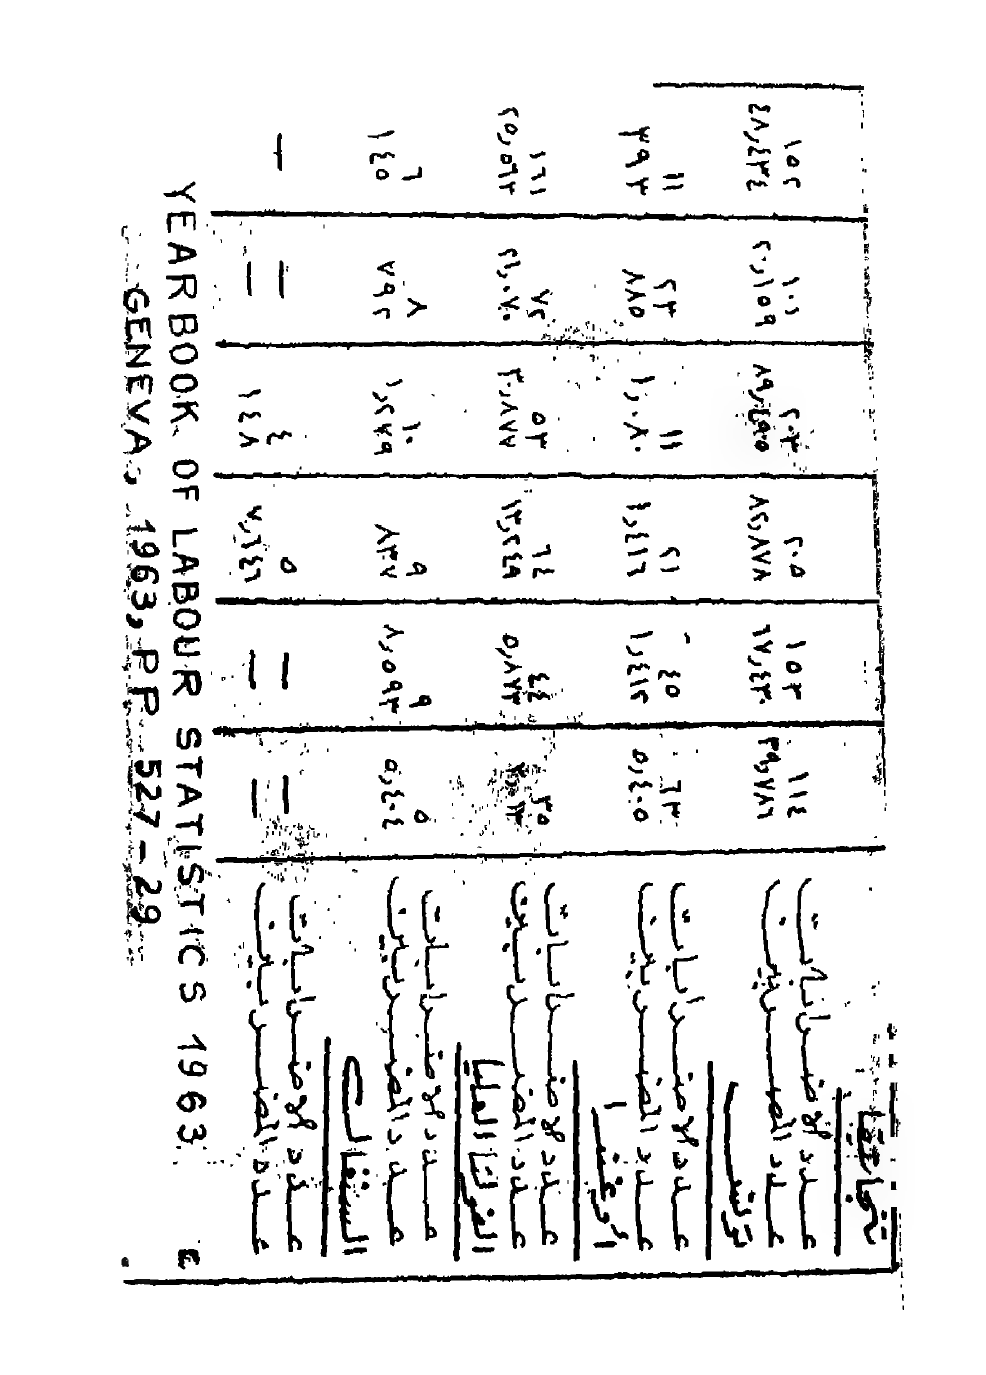 تنجانيقا
عدد الاضرابات ١١٤ ١٥٣ ٢٠٥ ٢٠٣ ١٠١ ١٥٢
عدد المضربين ٣٩,٧٨٦ ٦٧,٤٣٠ ٨٢,٨٧٨ ٨٩,٤٩٥ ٢٠,١٥٩ ٤٨,٤٣٤
تونس
عدد الاضرابات ٦٣ ٤٥ ٢١ ١١ ٢٣ ١١
عدد المضربين ٥,٤٠٥ ١,٤١٢ ٤,٤١٦ ١,٠٨٠ ٨٨٥ ٣٩٣
أوغندا
عدد الاضرابات ٣٥ ٤٤ ٦٤ ٥٣ ٧٢ ١٦١
عدد المضربين ٥,٨٧٣ ١٣,٢٤٩ ٣٠,٨٧٧ ٢١,٠٧٠ ٢٥,٥٦٣
الفولتا العليا
عدد الاضرابات ٥ ٩ ٩ ١٠ ٨ ٦
عدد المضربين ٥,٤٠٤ ٨,٥٩٣ ٨٣٧ ١,٢٧٩ ٧٩٢ ١٤٥
السنغال
عدد الاضرابات — — ٥ ٤ — —
عدد المضربين — — ٧,٦٤٦ ١٤٨ —
YEARBOOK OF LABOUR STATISTICS 1963
GENEVA, 1963, PP 527-29